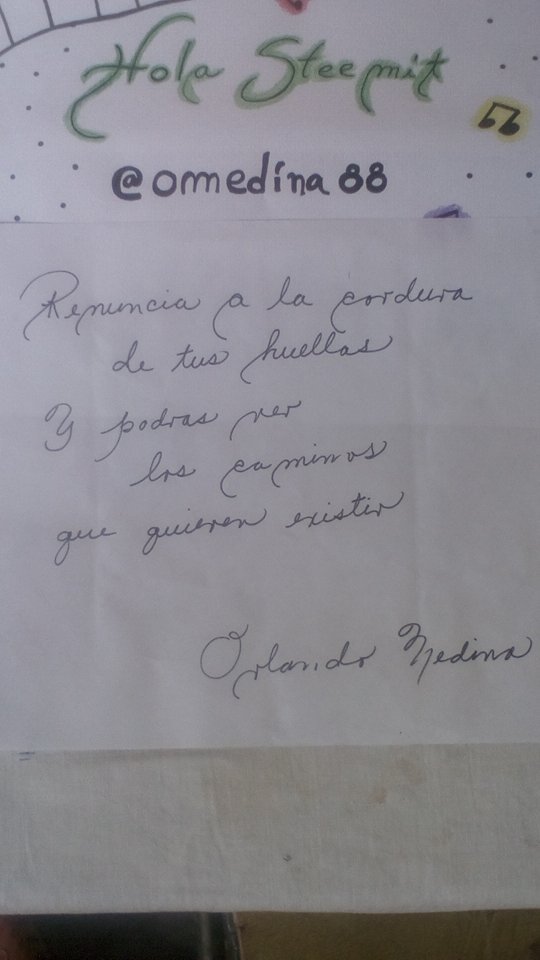 Hola Steemit
@omedina88
Renuncia a la cordura
de tus huellas
Y podras ver
los caminos
que quieren existir
Orlando Medina